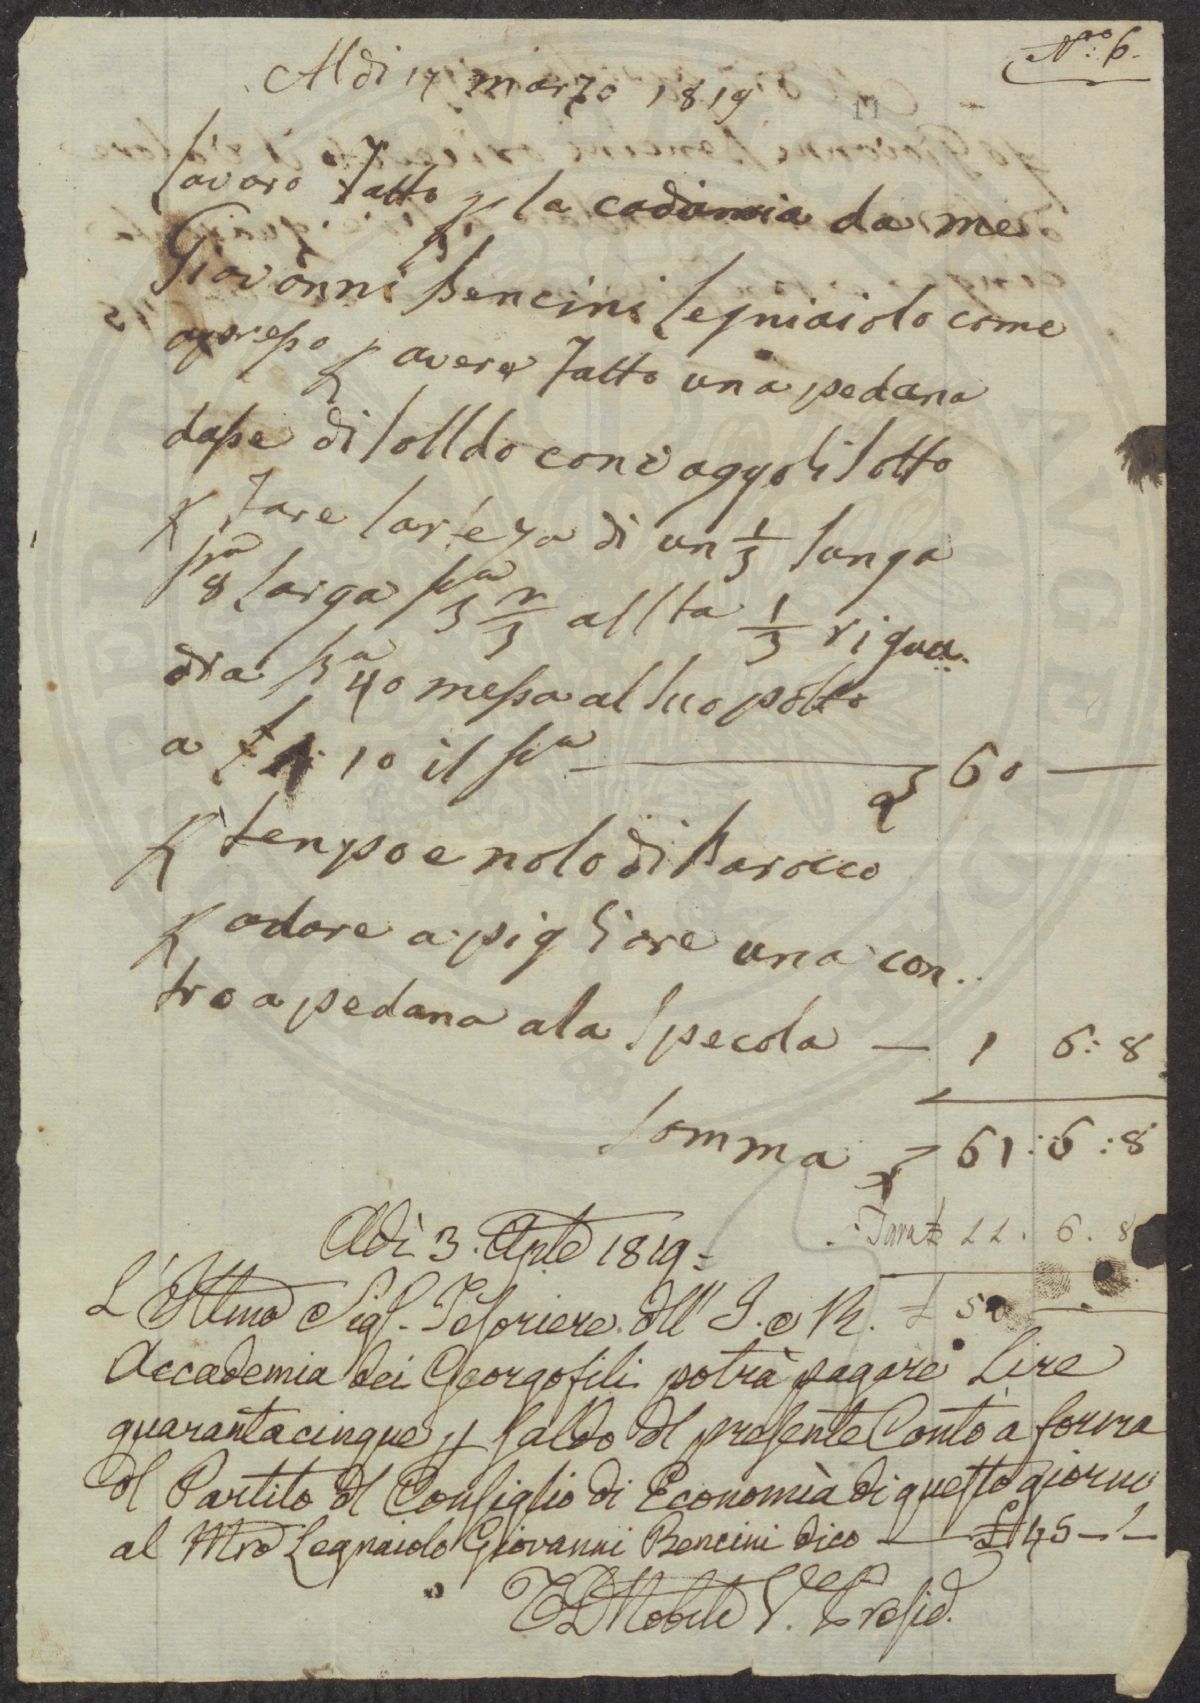 N.ro 6.
Al di 17 marzo 1819
lavoro fatto p la cademia da me
Giovanni Bencini legniaiolo come
apresso p avere fatto una pedana
dasse di solldo con i agholi sotto
p fare larteza di un 1/3 lunga
8 larga 3 2/3 allta 1/3 riqua
dra 40 messa al suo posto
a £ 1: 10 il — £ 60 —
p tenpo e nolo di Barocco
p adare a pigliare una con..
tro a pedana ala Specola — 1 6: 8
Somma £ 61: 6: 8
Tara £ 11. 6. 8
£ 50 —
Adì 3. Aprle 1819.
L'Illmo Sigr. Tesoriere dll' I. e R.
Accademia dei Georgofili potrà pagare Lire
quarantacinque p saldo dl presente Conto à forma
dl Partito dl Consiglio di Economìa di questo giorno
al Mro Legnaiolo Giovanni Bencini dico — £ 45 — " —
V. Presid.